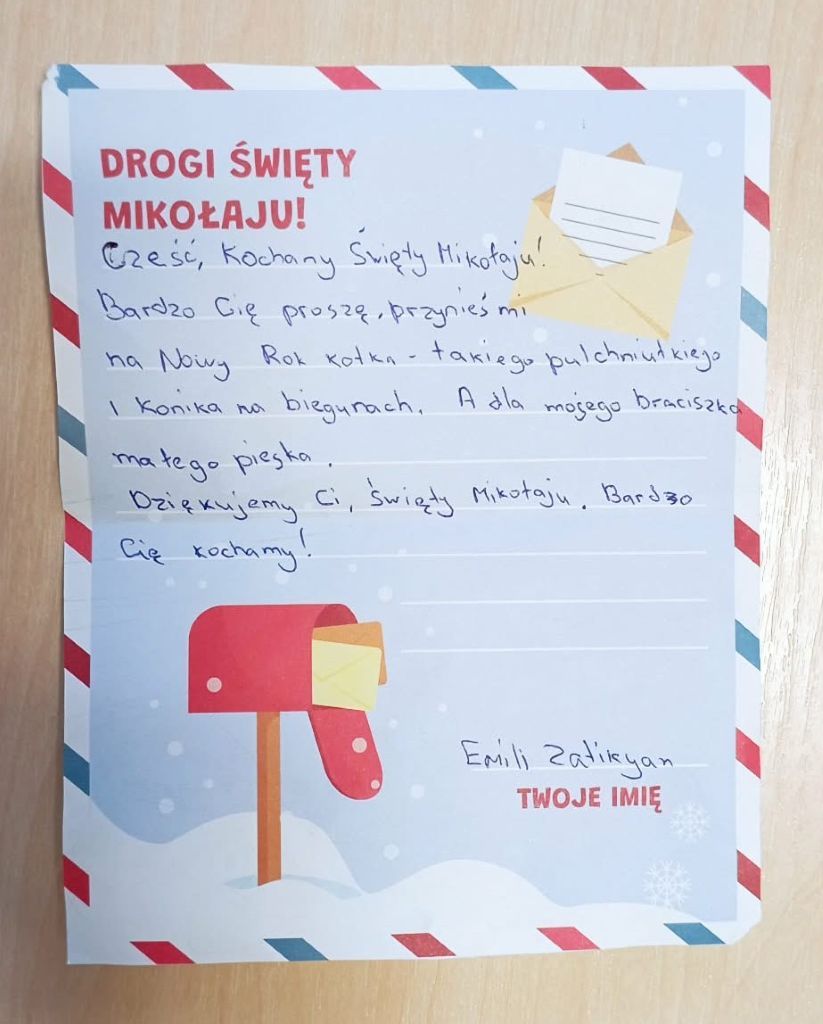 DROGI ŚWIĘTY
MIKOŁAJU!
Cześć, Kochany Święty Mikołaju!
Bardzo Cię proszę, przynieś mi
na Nowy Rok kotka - takiego pulchniutkiego
i konika na biegunach. A dla mojego braciszka
małego pieska.
Dziękujemy Ci, Święty Mikołaju. Bardzo
Cię kochamy!
Emili Zatikyan
TWOJE IMIĘ